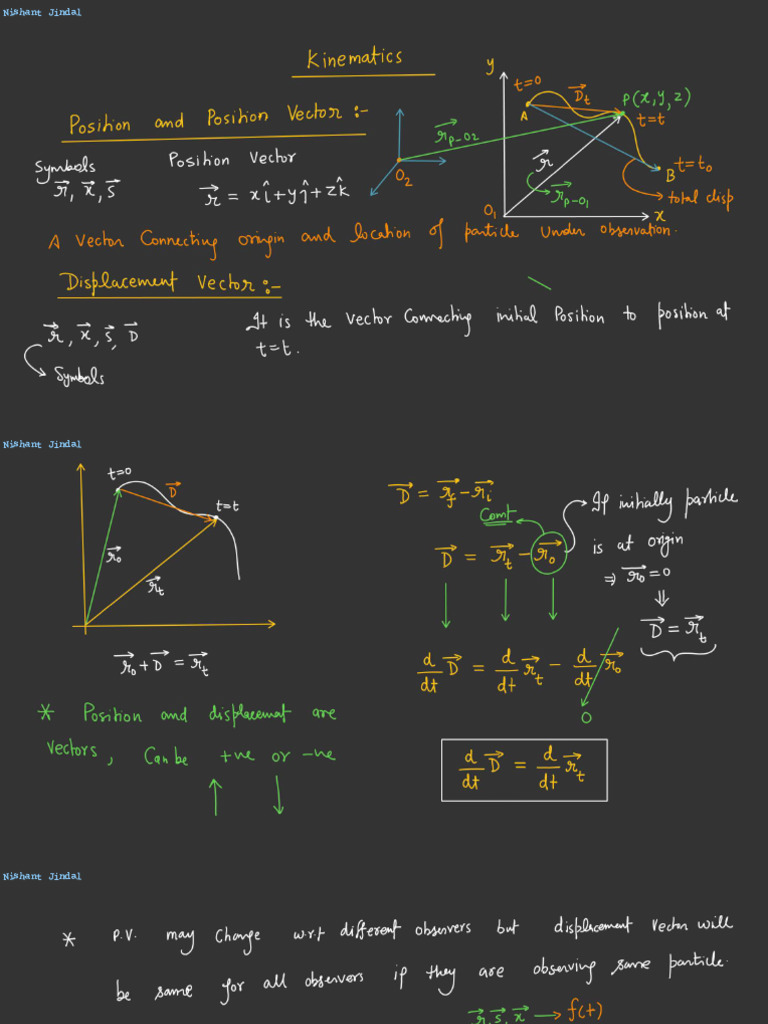 Nishant Jindal
Kinematics
Position and Position Vector :-
Symbols
r⃗, x⃗, s⃗
Position Vector
r⃗ = xî+yĵ+zk̂
O₂
r⃗ₚ₋ₒ₂
y
t=0
A
D⃗t
P(x,y,z)
t=t
r⃗
r⃗ₚ₋ₒ₁
B
t=t₀
total disp
O₁
x
A Vector Connecting origin and location of particle under observation.
Displacement Vector :-
r⃗, x⃗, s⃗, D⃗
Symbols
It is the vector connecting initial Position to position at
t=t.
Nishant Jindal
t=0
D⃗
t=t
r⃗₀
r⃗t
r⃗₀+D⃗ = r⃗t
D⃗ = r⃗f - r⃗i
Const
D⃗ = r⃗t - r⃗₀
If initially particle
is at origin
⇒ r⃗₀=0
⇓
D⃗ = r⃗t
d/dt D⃗ = d/dt r⃗t - d/dt r⃗₀
0
* Position and displacemat are
vectors, Can be +ve or -ve
d/dt D⃗ = d/dt r⃗t
Nishant Jindal
* P.V. may Change w.r.t different observers but displacement Vector will
be same for all observers if they are observing same particle.
r⃗, s⃗, x⃗ → f(t)